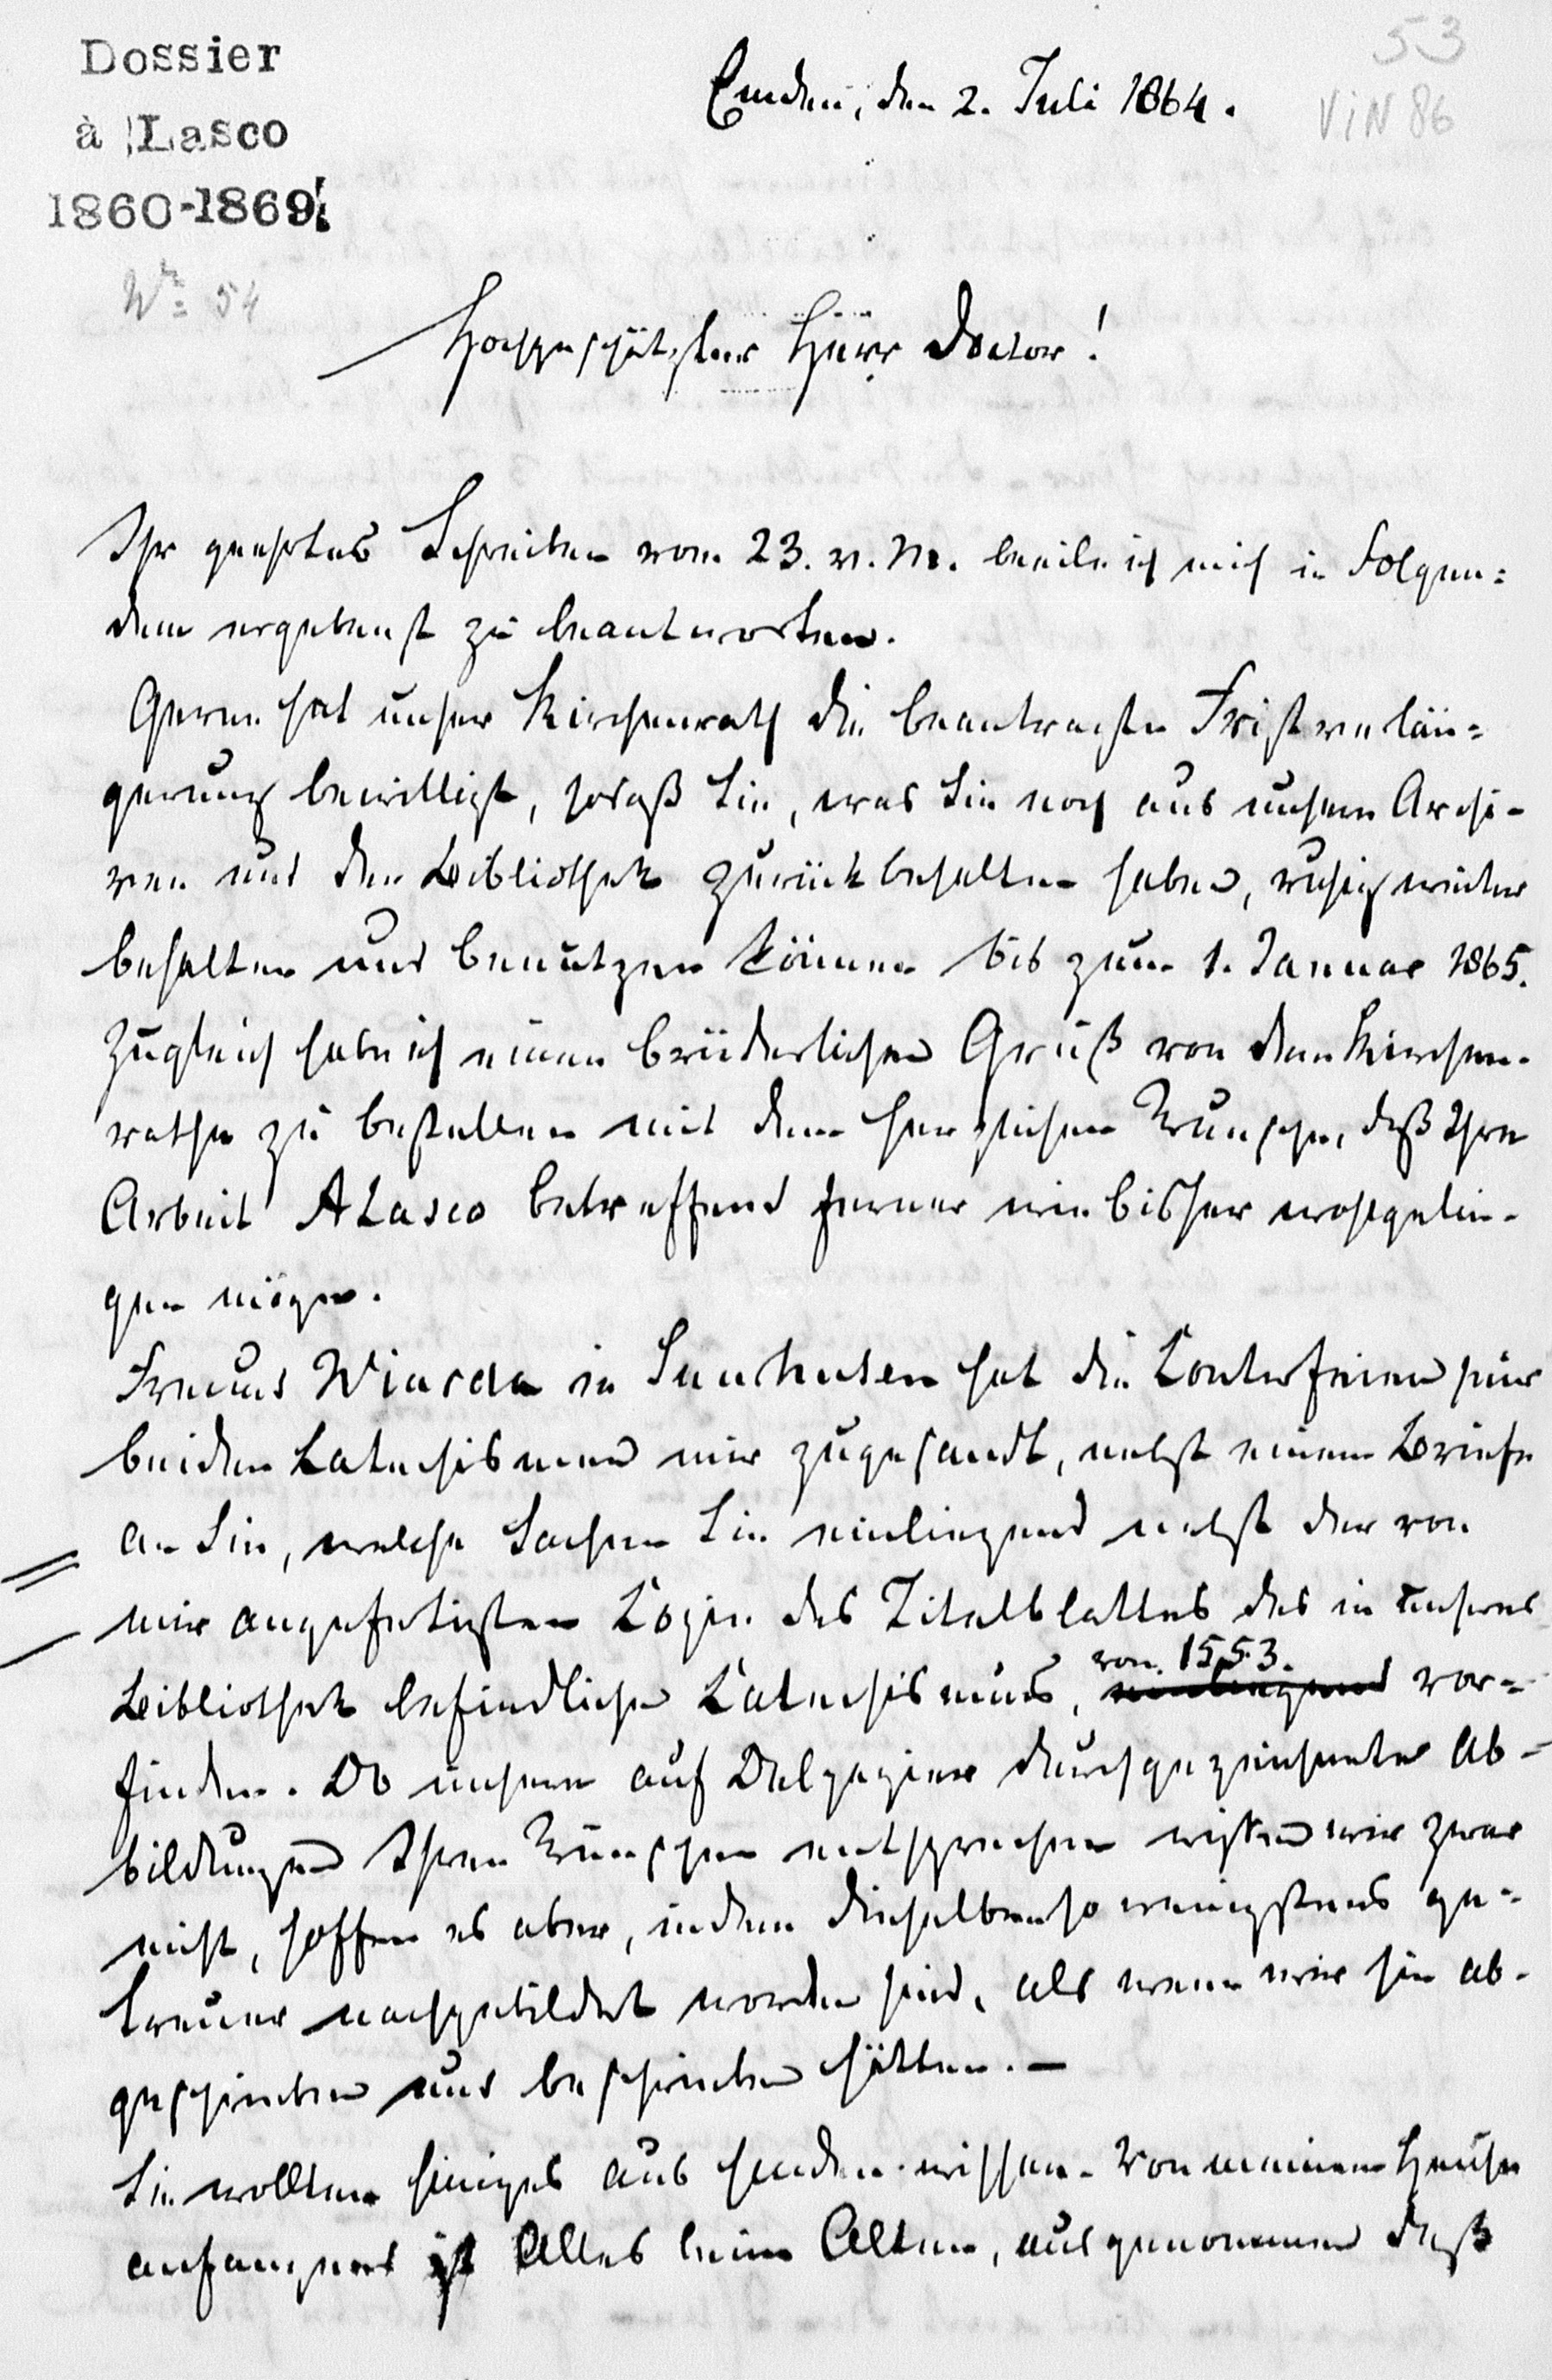 Dossier
à Lasco
1860-1869
No 54
53
VIN 86
Emden, den 2. Juli 1864.
Hochgeschätzter Herr Doctor!
Ihr geehrtes Schreiben vom 23. v. M. beeile ich mich in Folgen=
dem ergebenst zu beantworten.
Gerne hat unser Kirchenrath die beantragte Fristverlän=
gerung bewilligt, sodaß Sie, was Sie noch aus unserm Archi-
ven und der Bibliothek zurückbehalten haben, ruhig weiter
behalten und benutzen können bis zum 1. Januar 1865.
Zugleich habe ich einen brüderlichen Gruß von dem Kirchen-
rathe zu bestellen mit dem herzlichen Wunsche, daß Ihre
Arbeit A Lasco betreffend ferner wie bisher wohlgelin-
gen möge.
Freund Wiarda in Suurhusen hat die Konterfeien seiner
beiden Katechismen mir zugesandt, nebst einem Briefe
an Sie, welche Sachen Sie einliegend nebst der von
mir angefertigten Kopie des Titelblattes des in unserer
Bibliothek befindlichen Katechismus, von 1553. einliegend vor=
finden. Ob unsere auf Oelpapier durchgezeichneten Ab-
bildungen Ihren Wünschen entsprechen wissen wir zwar
nicht, hoffen es aber, indem dieselben so wenigstens ge-
treuer nachgebildet worden sind, als wenn wir sie ab-
geschrieben und beschrieben hätten. —
Sie wollten Einiges aus Emden wissen. Von meinem Hause
anfangend ist Alles beim Alten, ausgenommen daß